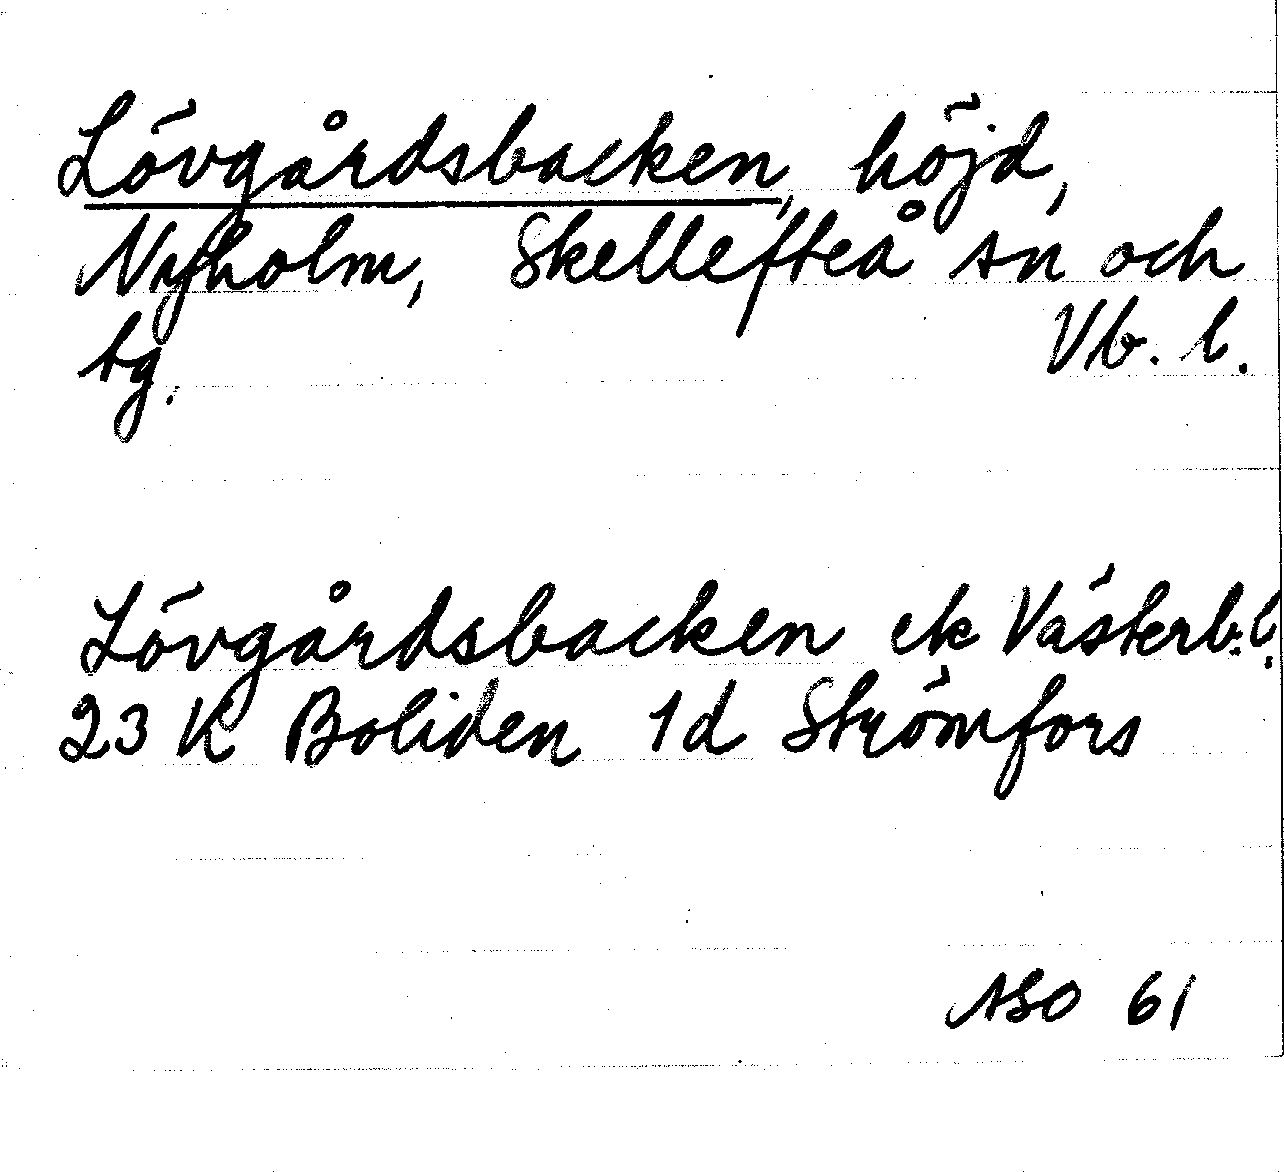 Lövgårdsbacken, höjd,
Nyholm, Skellefteå sn och
tg. Vb. l.
Lövgårdsbacken ek Västerb. l.
23 K Boliden 1d Strömfors
ASO 61